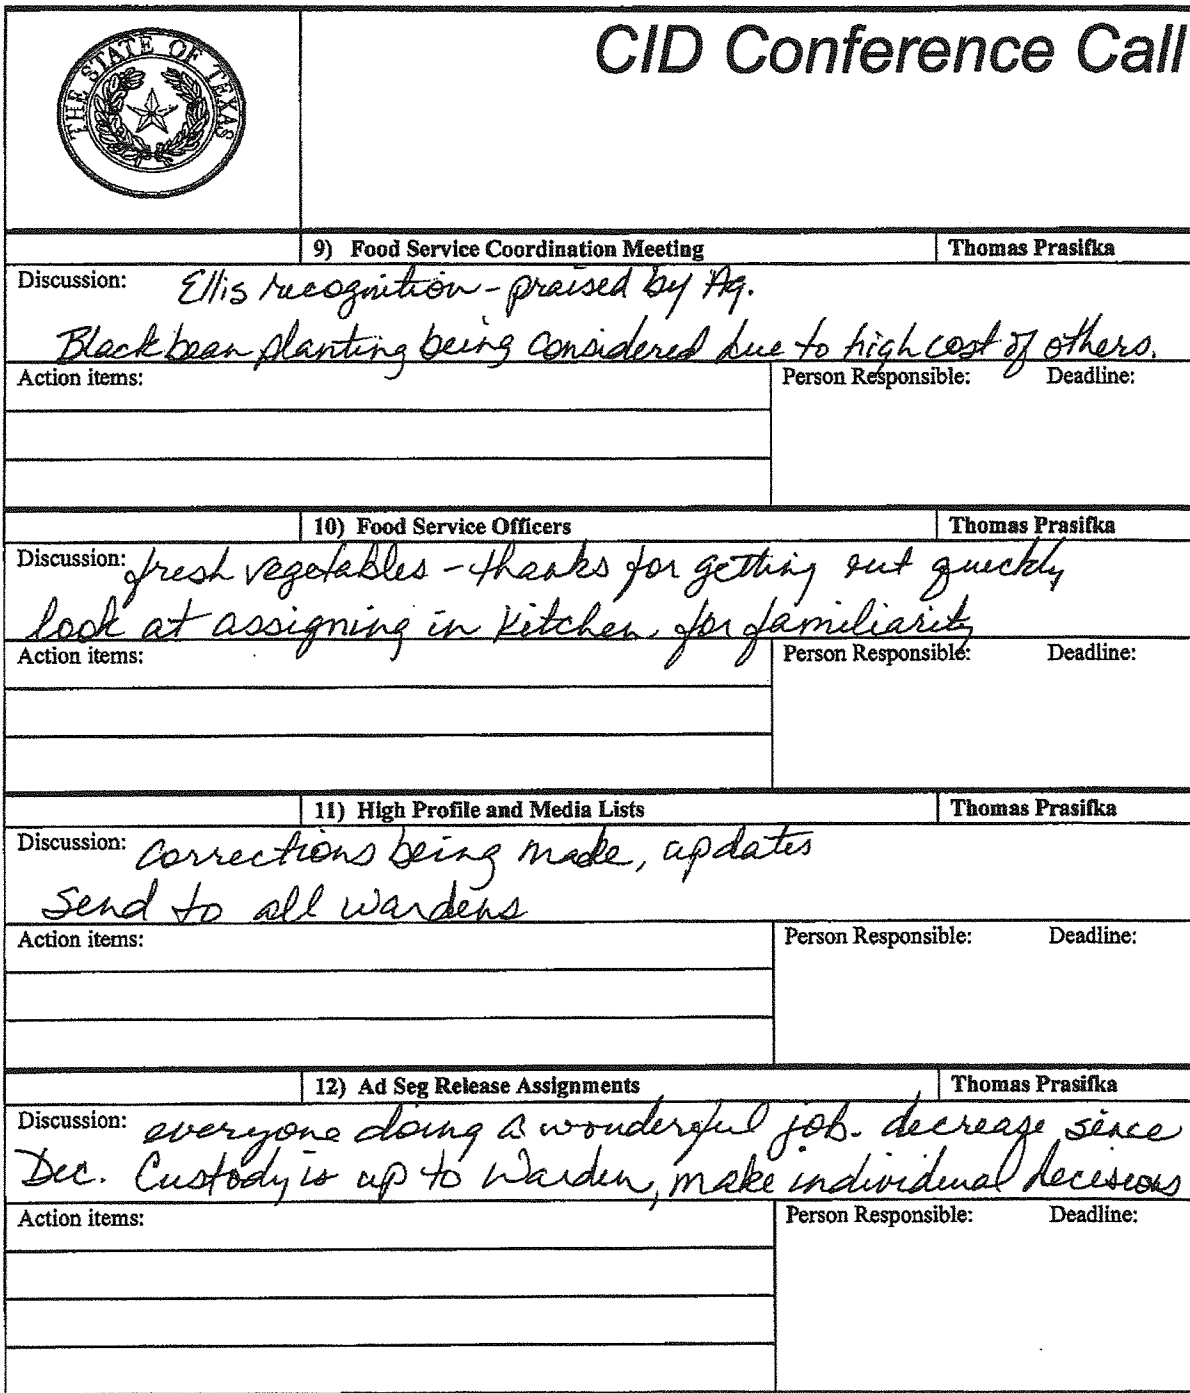 THE STATE OF TEXAS
CID Conference Call
9) Food Service Coordination Meeting Thomas Prasifka
Discussion: Ellis recognition - praised by Ag.
Black bean planting being considered due to high cost of others.
Action items: Person Responsible: Deadline:
10) Food Service Officers Thomas Prasifka
Discussion: fresh vegetables - thanks for getting out quickly
look at assigning in kitchen, for familiarity
Action items: Person Responsible: Deadline:
11) High Profile and Media Lists Thomas Prasifka
Discussion: corrections being made, updates
Send to all wardens
Action items: Person Responsible: Deadline:
12) Ad Seg Release Assignments Thomas Prasifka
Discussion: everyone doing a wonderful job. decrease since
Dec. Custody is up to Warden, make individual decisions
Action items: Person Responsible: Deadline: